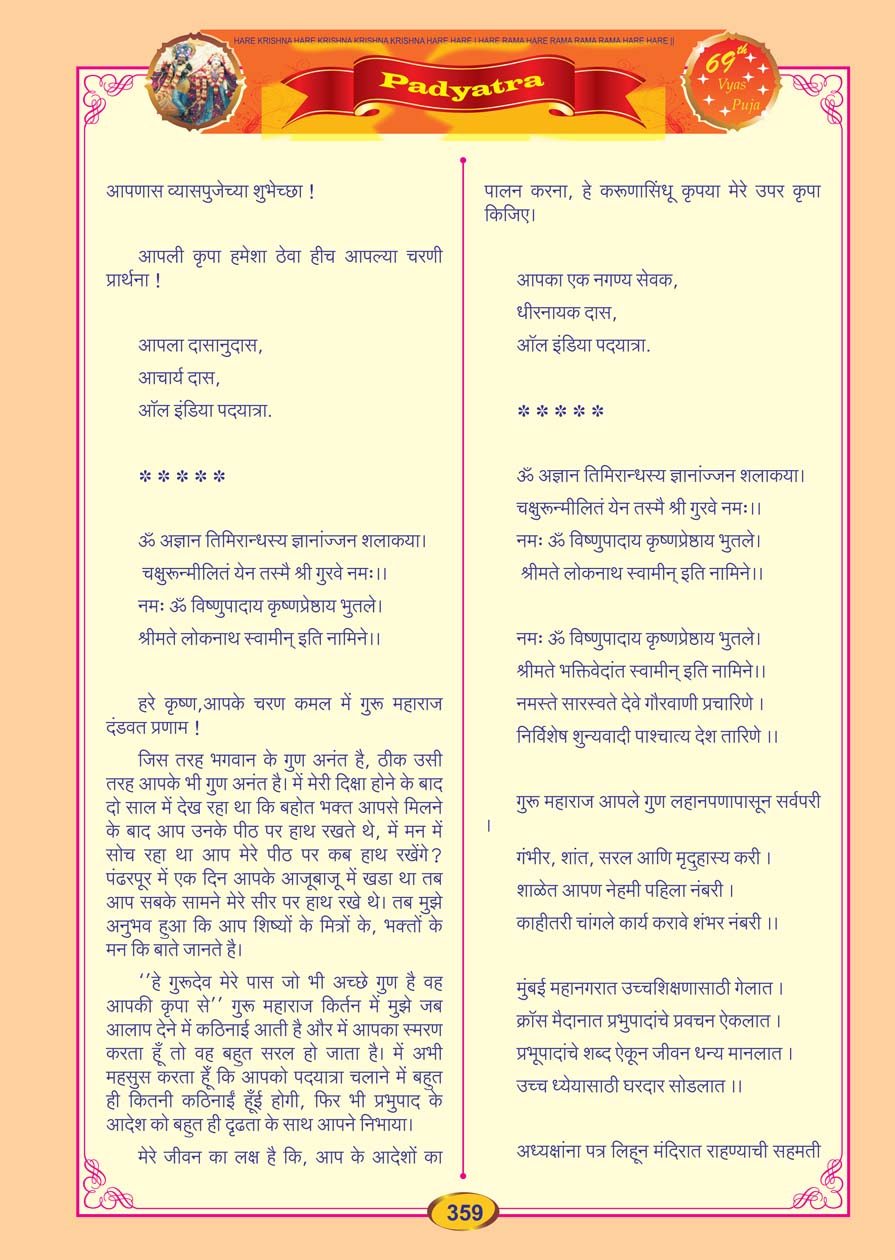 HARE KRISHNA HARE KRISHNA KRISHNA KRISHNA HARE HARE | HARE RAMA HARE RAMA RAMA RAMA HARE HARE ||
Padyatra
69th
Vyas
Puja
आपणास व्यासपुजेच्या शुभेच्छा !
आपली कृपा हमेशा ठेवा हीच आपल्या चरणी
प्रार्थना !
आपला दासानुदास,
आचार्य दास,
ऑल इंडिया पदयात्रा.
* * * * *
ॐ अज्ञान तिमिरान्धस्य ज्ञानांज्जन शलाकया।
चक्षुरून्मीलितं येन तस्मै श्री गुरवे नमः।।
नमः ॐ विष्णुपादाय कृष्णप्रेष्ठाय भुतले।
श्रीमते लोकनाथ स्वामीन् इति नामिने।।
हरे कृष्ण,आपके चरण कमल में गुरू महाराज
दंडवत प्रणाम !
जिस तरह भगवान के गुण अनंत है, ठीक उसी
तरह आपके भी गुण अनंत है। में मेरी दिक्षा होने के बाद
दो साल में देख रहा था कि बहोत भक्त आपसे मिलने
के बाद आप उनके पीठ पर हाथ रखते थे, में मन में
सोच रहा था आप मेरे पीठ पर कब हाथ रखेंगे?
पंढरपूर में एक दिन आपके आजूबाजू में खडा था तब
आप सबके सामने मेरे सीर पर हाथ रखे थे। तब मुझे
अनुभव हुआ कि आप शिष्यों के मित्रों के, भक्तों के
मन कि बाते जानते है।
‘‘हे गुरूदेव मेरे पास जो भी अच्छे गुण है वह
आपकी कृपा से’’ गुरू महाराज किर्तन में मुझे जब
आलाप देने में कठिनाई आती है और में आपका स्मरण
करता हूँ तो वह बहुत सरल हो जाता है। में अभी
महसुस करता हूँ कि आपको पदयात्रा चलाने में बहुत
ही कितनी कठिनाईं हूँई होगी, फिर भी प्रभुपाद के
आदेश को बहुत ही दृढता के साथ आपने निभाया।
मेरे जीवन का लक्ष है कि, आप के आदेशों का
पालन करना, हे करूणासिंधू कृपया मेरे उपर कृपा
किजिए।
आपका एक नगण्य सेवक,
धीरनायक दास,
ऑल इंडिया पदयात्रा.
* * * * *
ॐ अज्ञान तिमिरान्धस्य ज्ञानांज्जन शलाकया।
चक्षुरून्मीलितं येन तस्मै श्री गुरवे नमः।।
नमः ॐ विष्णुपादाय कृष्णप्रेष्ठाय भुतले।
श्रीमते लोकनाथ स्वामीन् इति नामिने।।
नमः ॐ विष्णुपादाय कृष्णप्रेष्ठाय भुतले।
श्रीमते भक्तिवेदांत स्वामीन् इति नामिने।।
नमस्ते सारस्वते देवे गौरवाणी प्रचारिणे ।
निर्विशेष शुन्यवादी पाश्चात्य देश तारिणे ।।
गुरू महाराज आपले गुण लहानपणापासून सर्वपरी
।
गंभीर, शांत, सरल आणि मृदुहास्य करी ।
शाळेत आपण नेहमी पहिला नंबरी ।
काहीतरी चांगले कार्य करावे शंभर नंबरी ।।
मुंबई महानगरात उच्चशिक्षणासाठी गेलात ।
क्रॉस मैदानात प्रभुपादांचे प्रवचन ऐकलात ।
प्रभूपादांचे शब्द ऐकून जीवन धन्य मानलात ।
उच्च ध्येयासाठी घरदार सोडलात ।।
अध्यक्षांना पत्र लिहून मंदिरात राहण्याची सहमती
359